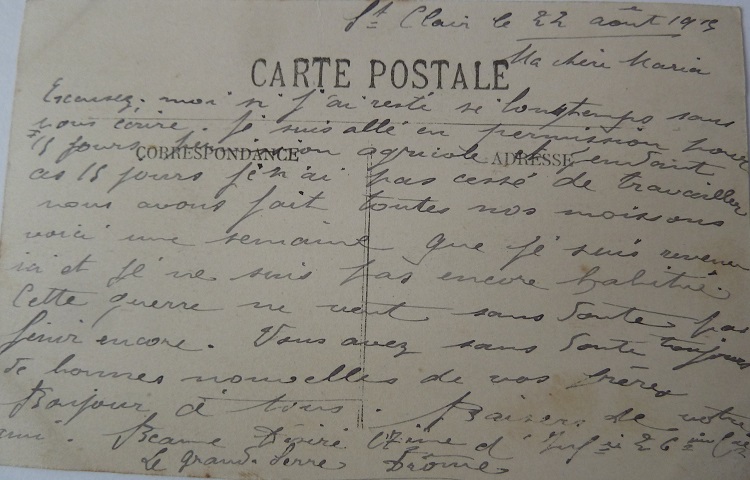 St Clair le 22 août 191
Ma chère Maria
CARTE POSTALE
Excusez. moi si j'ai resté si longtemps sans
vous écrire. Je suis allé en permission pour
15 jours agricole et pendant
CORRESPONDANCE
ADRESSE
15 jours je n'ai pas cessé de travailler
nous avons fait toutes nos moissons
voici une semaine que je suis revenu
ici et je ne suis pas encore habitué.
Cette guerre ne veut sans doute pas
finir encore. Vous avez sans doute toujours
de bonnes nouvelles de vos frères
Bonjour à tous. Baisers de votre
ami. Désiré d'Inf
Le grand Serre Drôme